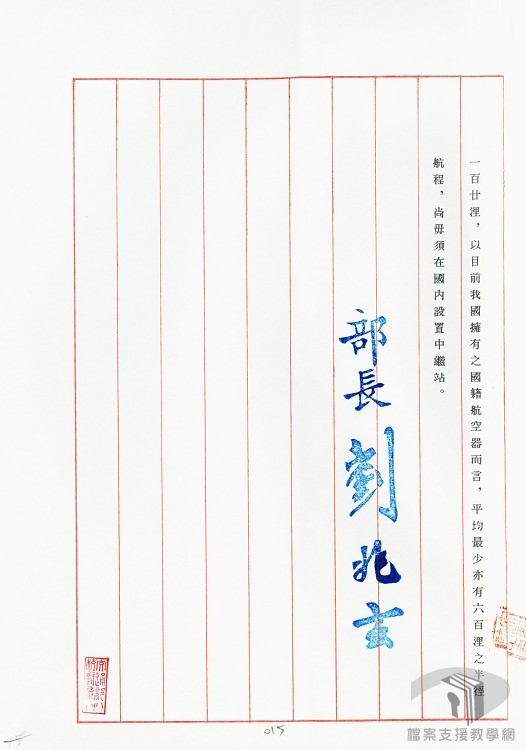 一百廿浬，以目前我國擁有之國籍航空器而言，平均最少亦有六百浬之半徑
航程，尚毋須在國內設置中繼站。
部長 劉兆玄
015
檔案支援教學網